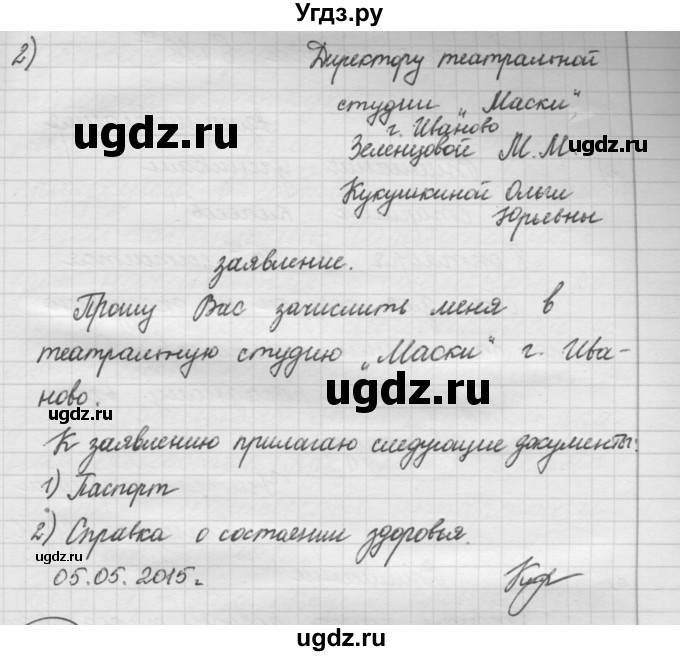 Угдз.ру
2)
Директору театральной
студии „Маски",
г. Иваново
Зеленцовой М.М.
Кукушкиной Ольги
Юрьевны
заявление.
Прошу Вас зачислить меня в
театральную студию „Маски" г. Ива-
ново.
К заявлению прилагаю следующие документы:
1) Паспорт
2) Справка о состоянии здоровья.
05.05.2015г.
ugdz.ru
ugdz.ru
ugdz.ru
ugdz.ru
ugdz.ru
ugdz.ru